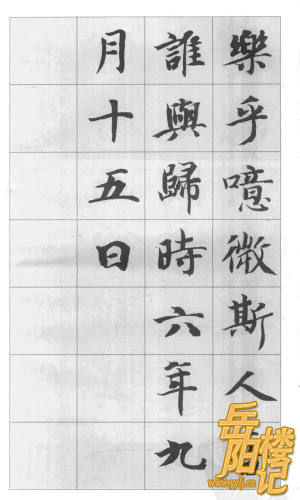 樂乎噫微斯人
誰與歸時六年九
月十五日
岳阳楼记